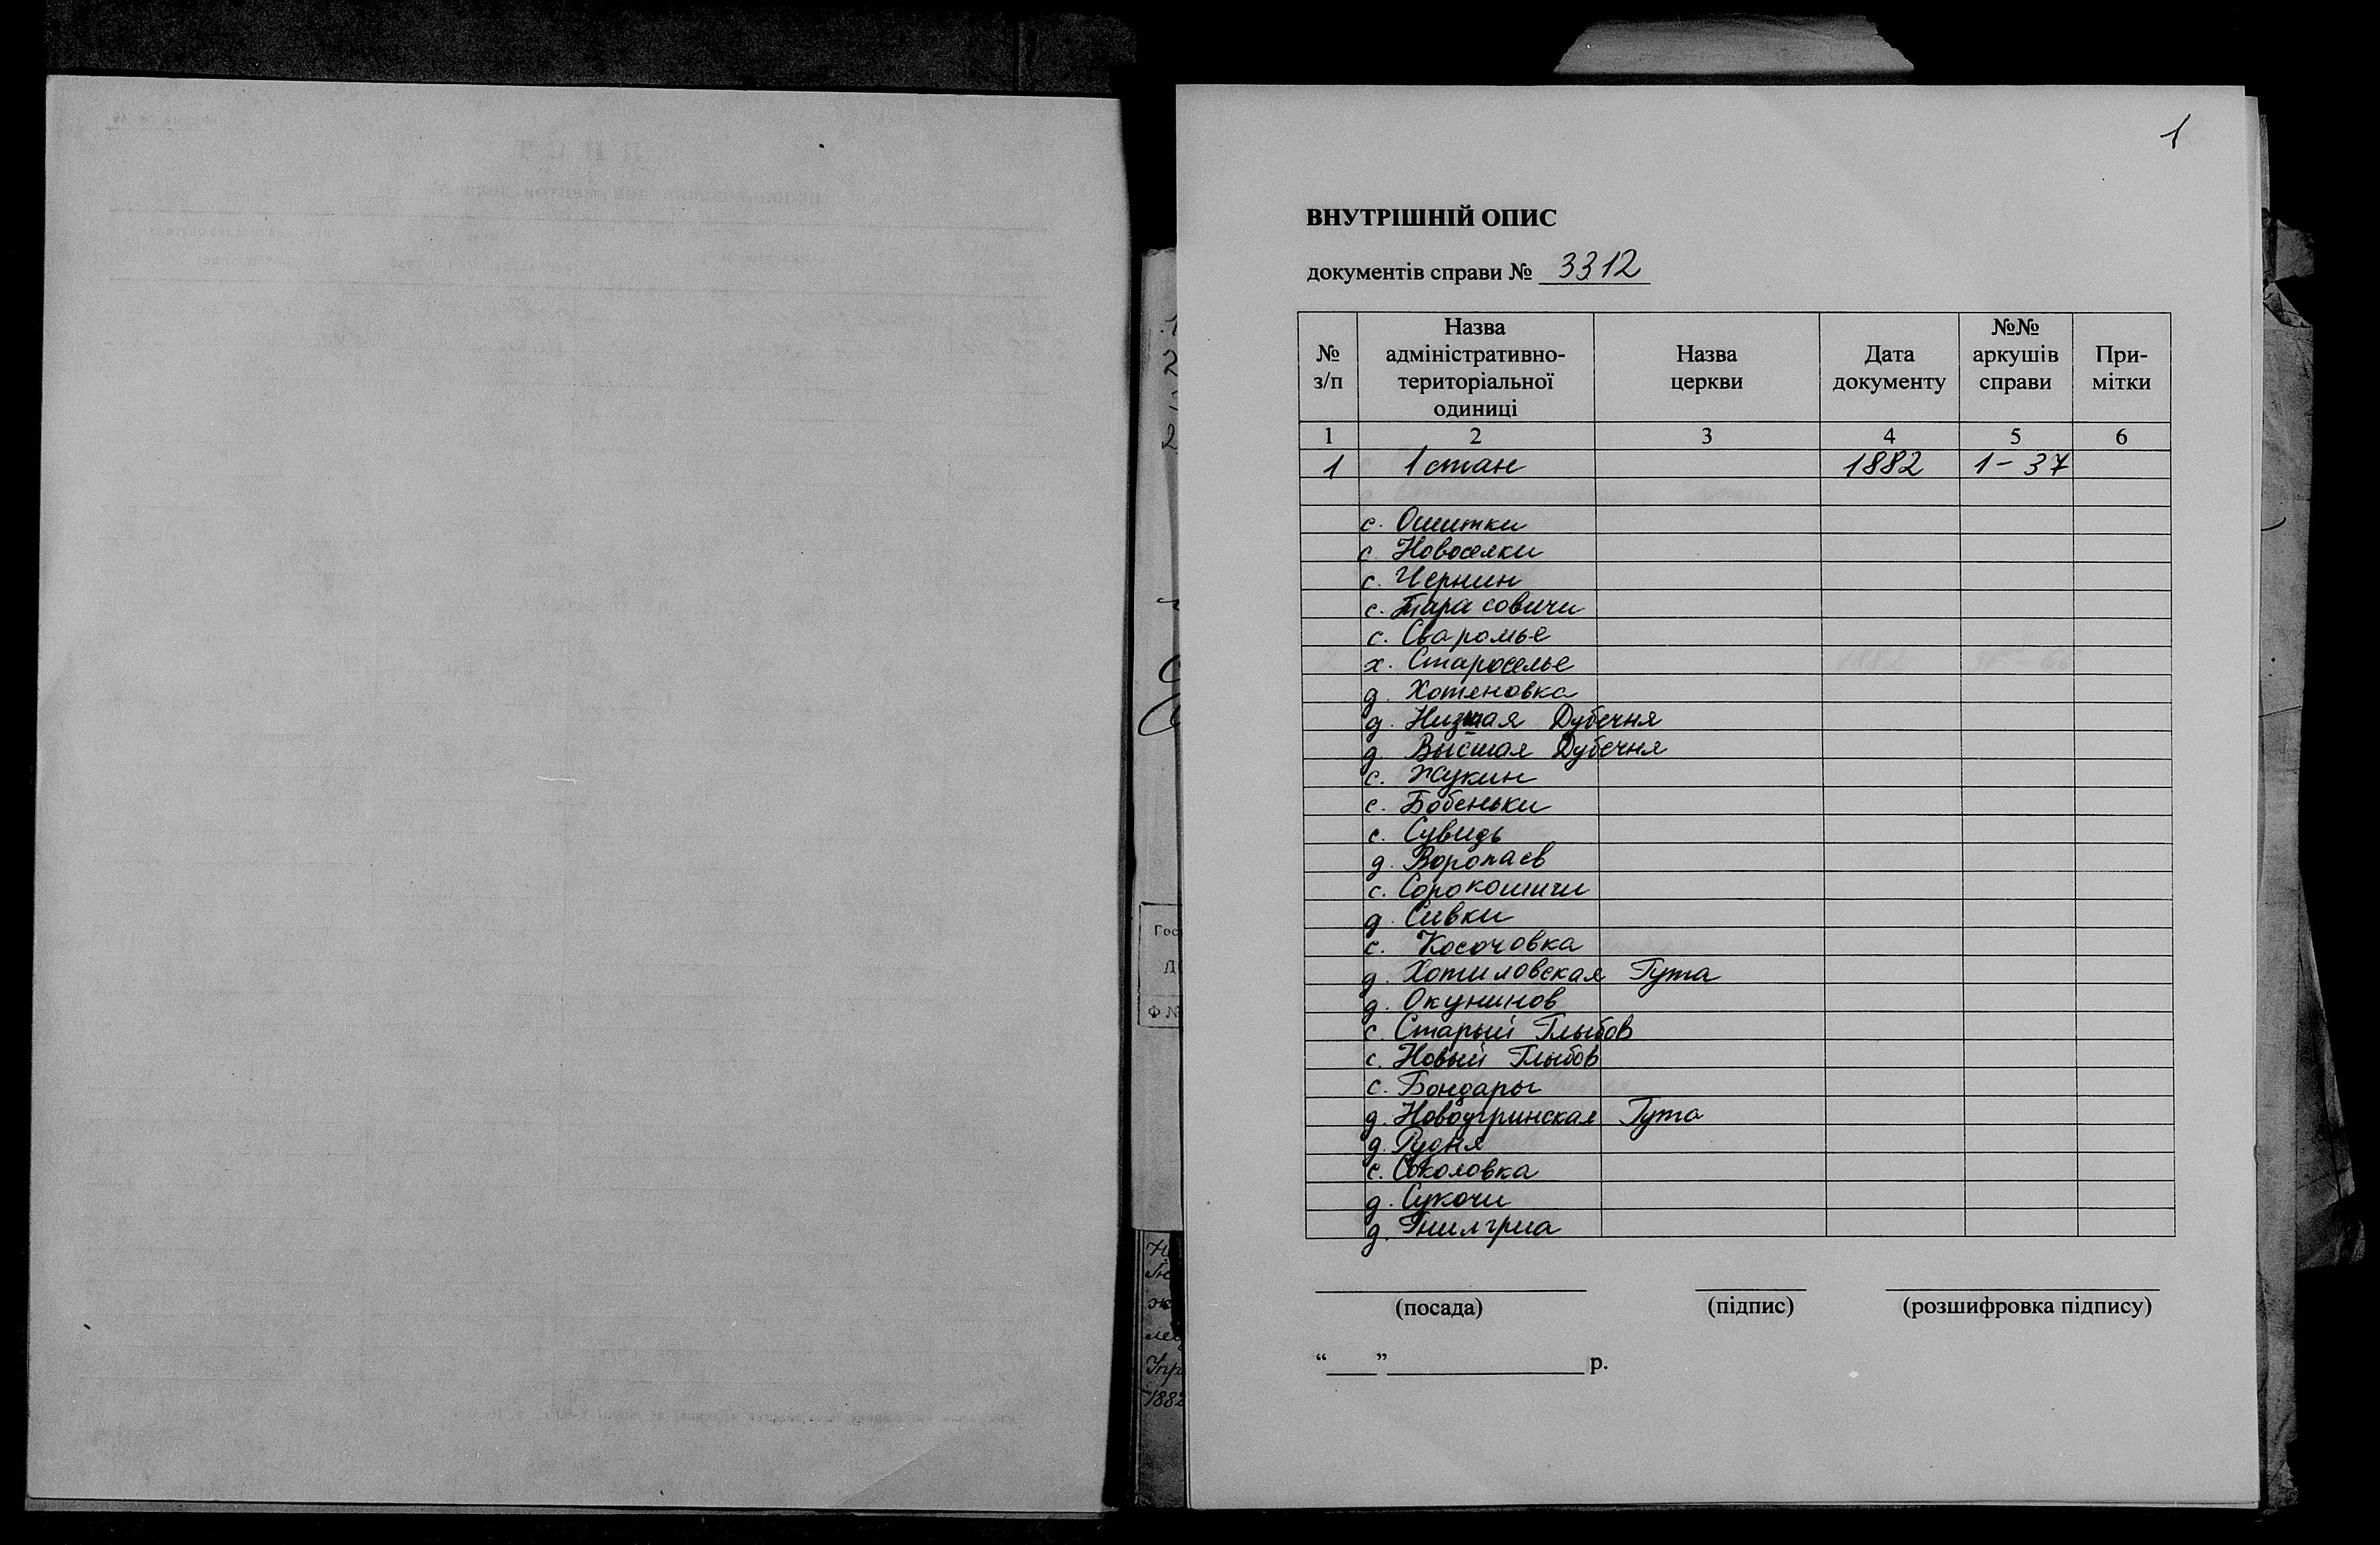 1
ВНУТРІШНІЙ ОПИС
документів справи № 3312
№ з/п | Назва адміністративно-територіальної одиниці | Назва церкви | Дата документу | №№ аркушів справи | При-мітки
1 2 3 4 5 6
1 1 стан 1882 1-37
с. Ошитки
с. Новоселки
с. Чернин
с. Тарасовичи
с. Сваромье
х. Староселье
д. Хотяновка
д. Низшая Дубечня
д. Высшая Дубечня
с. Жукин
с. Бобеньки
с. Сувидь
д. Воропаев
с. Сорокошичи
д. Сивки
с. Косочовка
д. Хотиловская Гута
д. Окунинов
с. Старый Глыбов
с. Новый Глыбов
с. Бондары
д. Новоугринская Гута
д. Рудня
с. Соколовка
д. Сукочи
д.
(посада) (підпис) (розшифровка підпису)
“___” ____________ р.
Гос
Ф №
1882